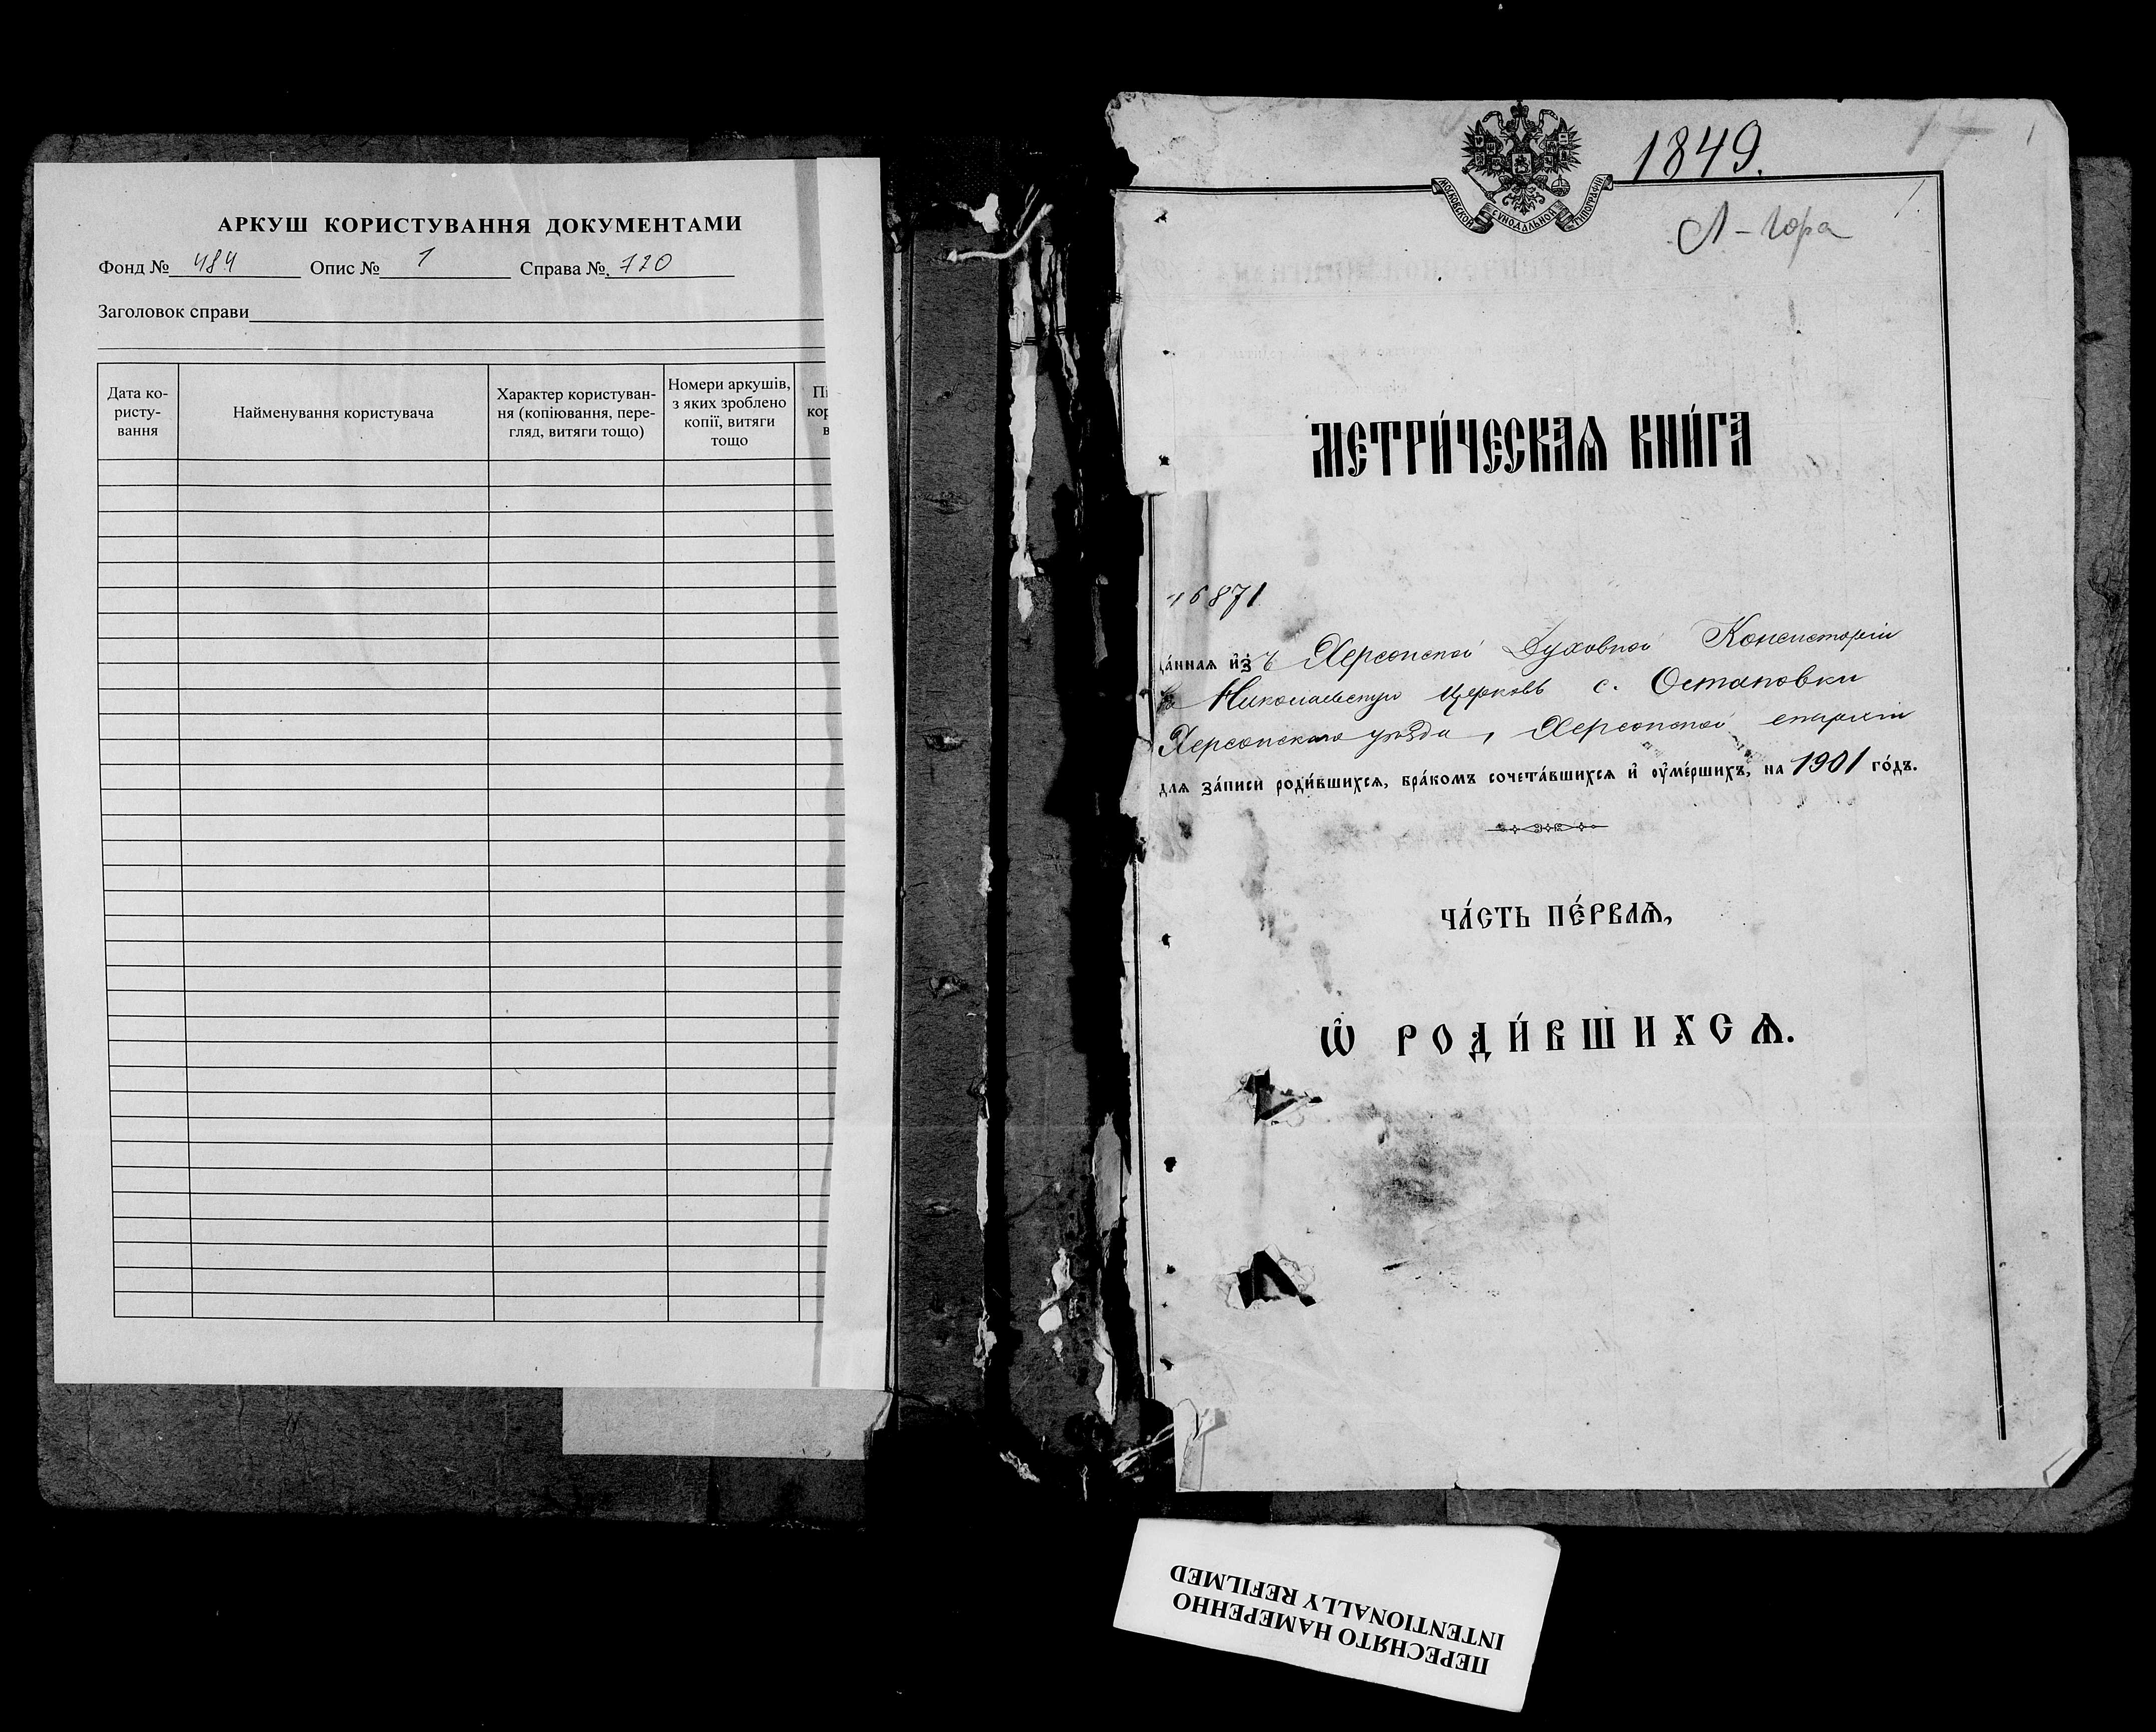 АРКУШ КОРИСТУВАННЯ ДОКУМЕНТАМИ
Фонд № 484 Опис № 1 Справа № 720
Заголовок справи
Дата ко-
ристу-
вання
Найменування користувача
Характер користуван-
ня (копіювання, пере-
гляд, витяги тощо)
Номери аркушів,
з яких зроблено
копії, витяги
тощо
Пі
кор
в
1849.
МОСКОВСКОЙ СУНОДАЛЬНОЙ ТИПОГРАФІИ
Л-гора
МЕТРИ́ЧЕСКАѦ КНИ́ГА
16871
да́ннаѧ и҆з ъ Херсонской Духовной Консисторіи
въ Николаевскую церковь с. Остановки
Херсонскаго уѣзда, Херсонской епархіи
длѧ за́писи роди́вшихсѧ, бра́комъ сочета́вшихсѧ и҆ ᲂу҆ме́ршихъ, на 1901 го́дъ.
ЧА́СТЬ ПЕ́РВАѦ,
Ѽ РОДИ́ВШИХСѦ.
ПЕРЕСНЯТО НАМЕРЕННО
INTENTIONALLY REFILMED